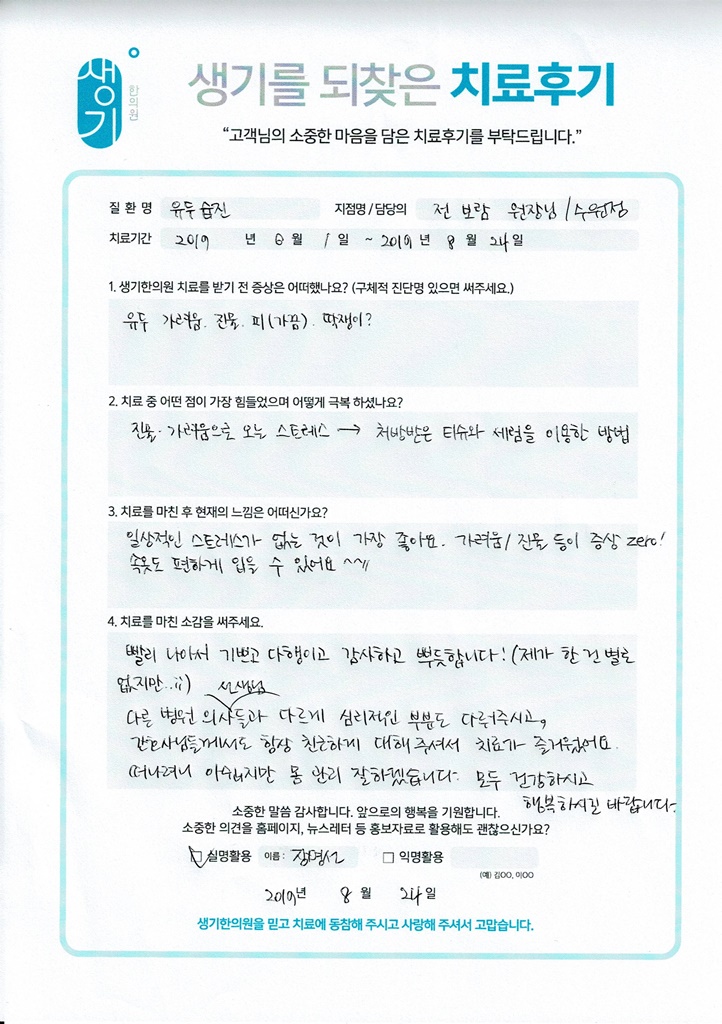 생기
한의원
생기를 되찾은 치료후기
“고객님의 소중한 마음을 담은 치료후기를 부탁드립니다.”
질 환 명 유두습진 지점명 / 담당의 전보람 원장님 / 수원점
치료기간 2019 년 6 월 1 일 ~ 2019 년 8 월 24 일
1. 생기한의원 치료를 받기 전 증상은 어떠했나요? (구체적 진단명 있으면 써주세요.)
유두 가려움. 진물. 피(가끔). 딱쟁이?
2. 치료 중 어떤 점이 가장 힘들었으며 어떻게 극복 하셨나요?
진물. 가려움으로 오는 스트레스 → 처방받은 티슈와 세럼을 이용한 방법
3. 치료를 마친 후 현재의 느낌은 어떠신가요?
일상적인 스트레스가 없는 것이 가장 좋아요. 가려움/진물 등이 증상 zero!
속옷도 편하게 입을 수 있어요 ^^//
4. 치료를 마친 소감을 써주세요.
빨리 나아서 기쁘고 다행이고 감사하고 뿌듯합니다! (제가 한 건 별로
없지만..;;) 선생님
다른 병원 의사들과 다르게 심리적인 부분도 다뤄주시고,
간호사님들께서도 항상 친근하게 대해주셔서 치료가 즐거웠어요.
떠나려니 아쉽지만 몸 관리 잘하겠습니다. 모두 건강하시고
행복하시길 바랍니다.
소중한 말씀 감사합니다. 앞으로의 행복을 기원합니다.
소중한 의견을 홈페이지, 뉴스레터 등 홍보자료로 활용해도 괜찮으신가요?
☑ 실명활용 이름 : 장명선 □ 익명활용
(예) 김OO, 이OO
2019년 8 월 24 일
생기한의원을 믿고 치료에 동참해 주시고 사랑해 주셔서 고맙습니다.